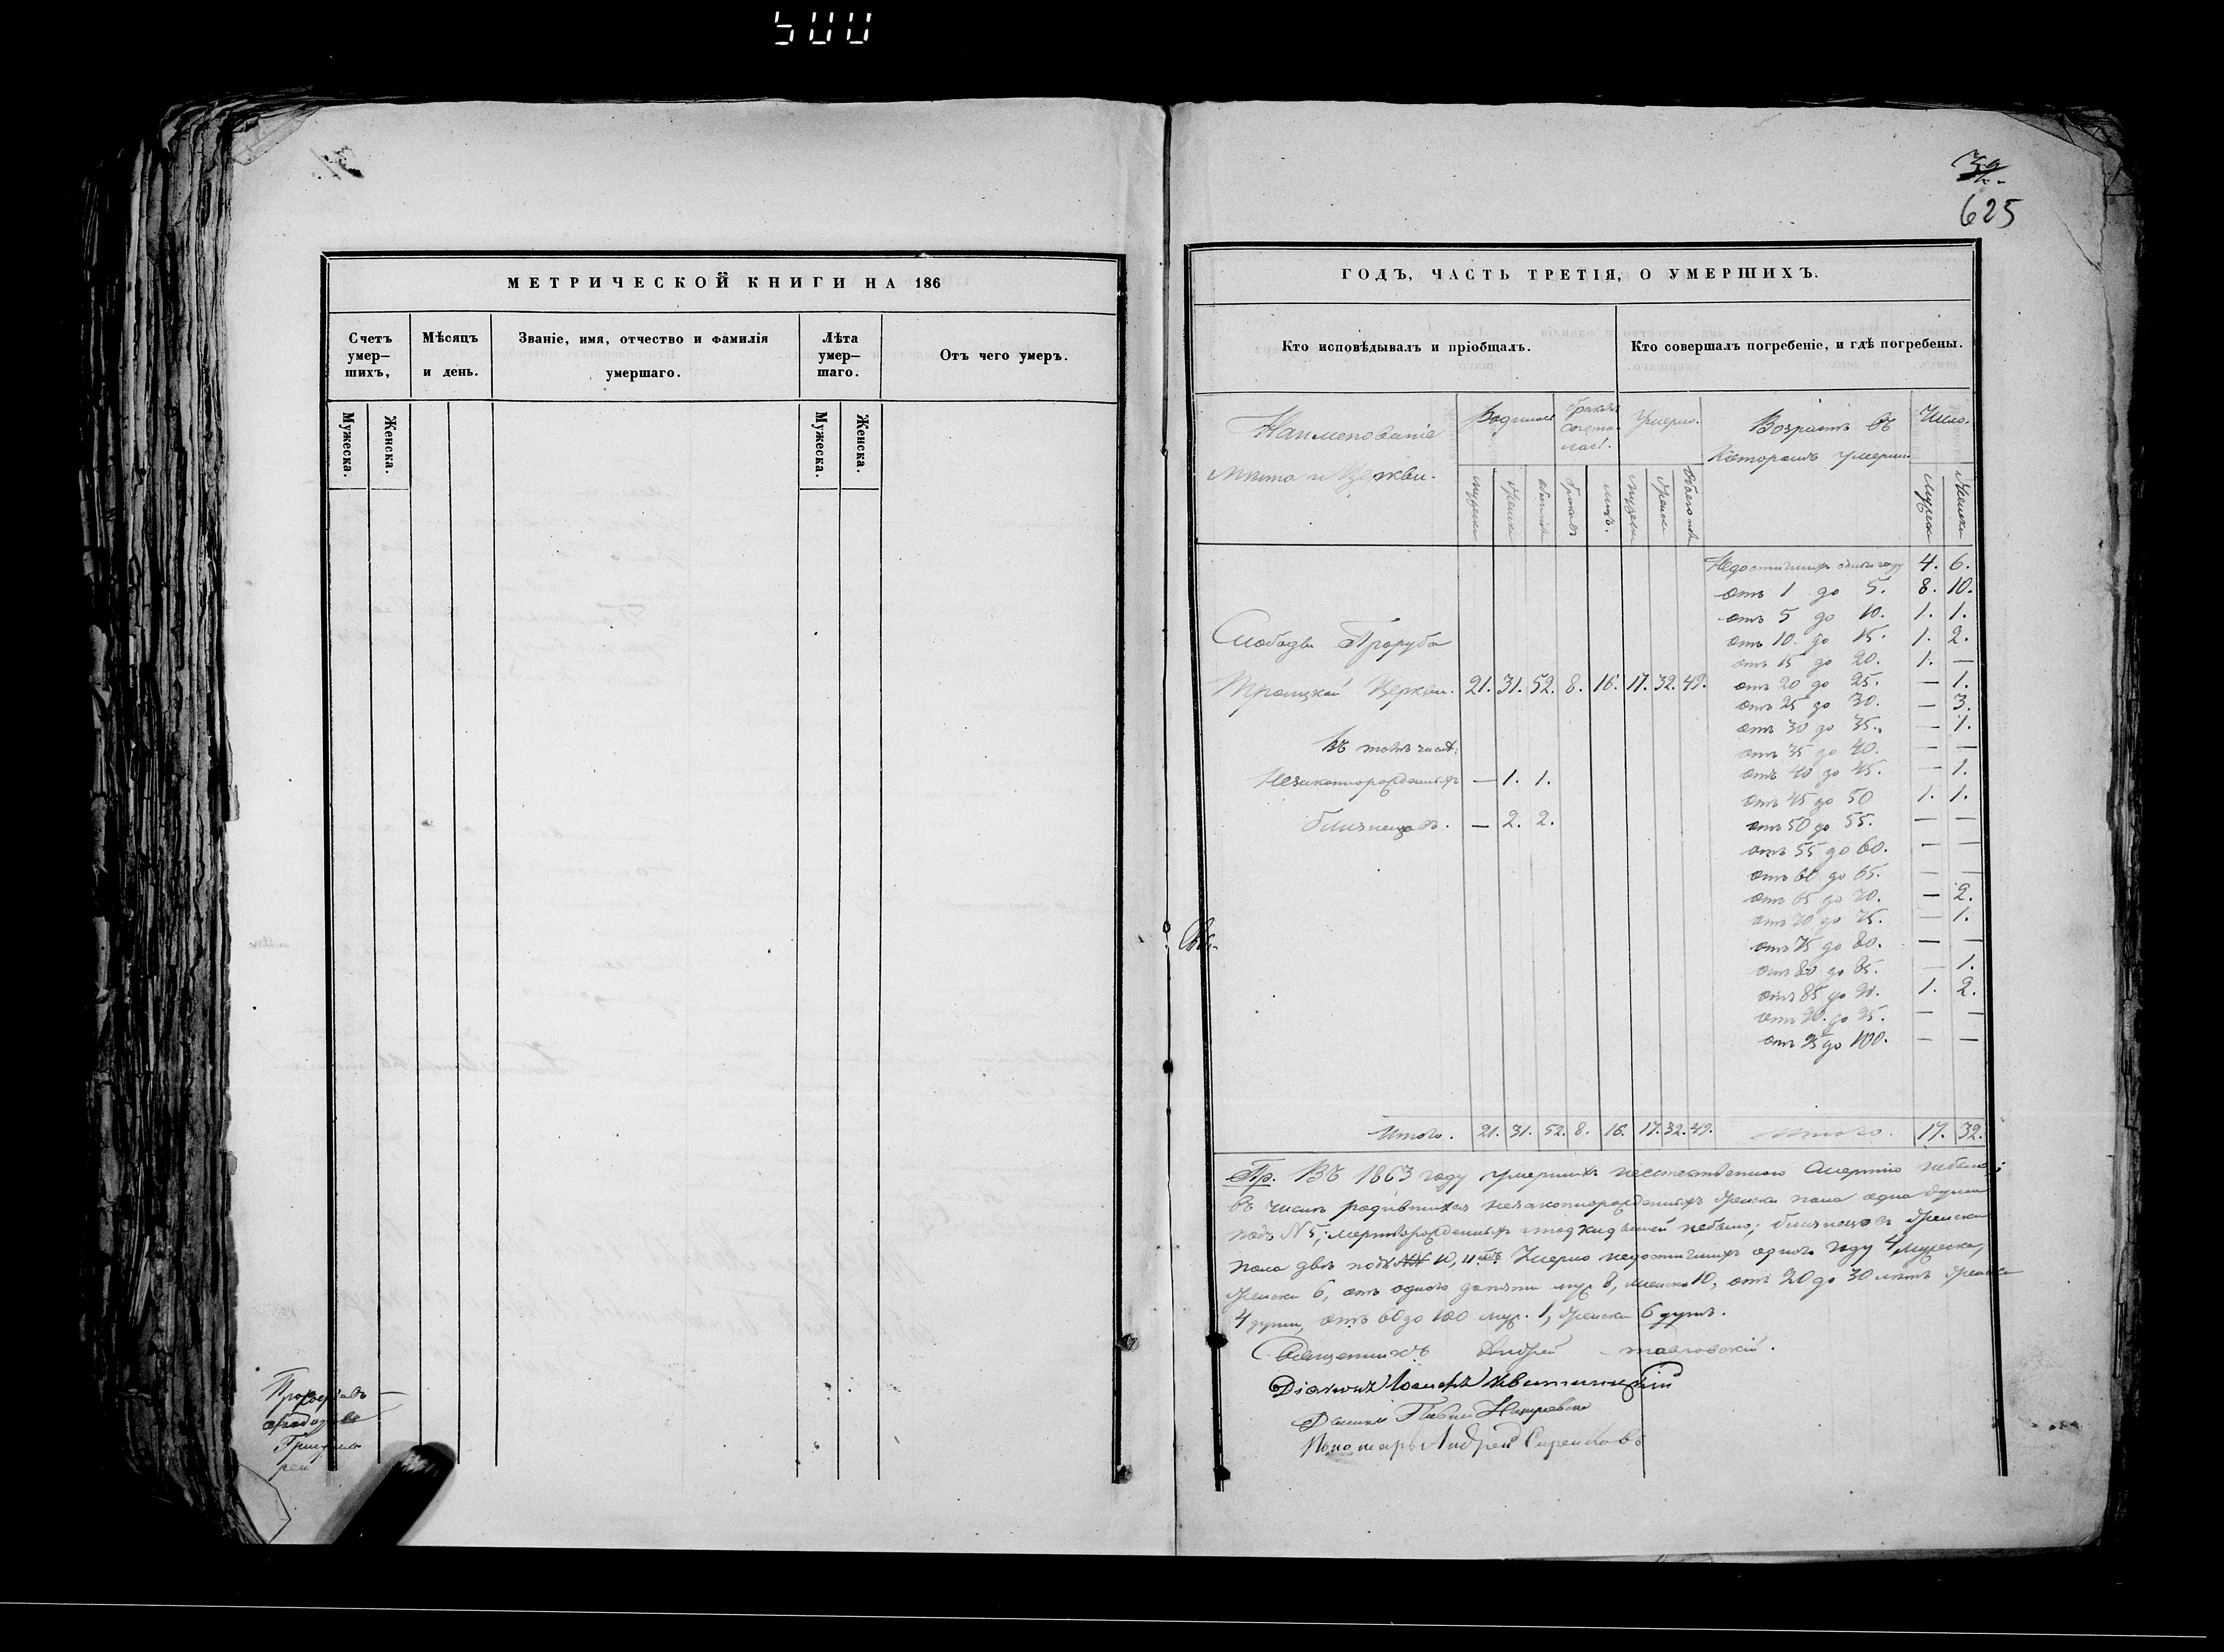 500
32
625
МЕТРИЧЕСКОЙ КНИГИ НА 186
Счетъ умер-шихъ,
Мѣсяцъ и день.
Званіе, имя, отчество и фамилія умершаго.
Лѣта умер-шаго.
Отъ чего умеръ.
Мужеска.
Женска.
Мужеска.
Женска.
ГОДЪ, ЧАСТЬ ТРЕТІЯ, О УМЕРШИХЪ.
Кто исповѣдывалъ и пріобщалъ.
Кто совершалъ погребеніе, и гдѣ погребены.
Наименованіе
мѣста и Церкви.
Родилось
Умерло.
Возрастъ въ
Которомъ умерли
Число.
Недостигшихъ одного году 4. 6.
отъ 1 до 5. 8. 10.
отъ 5 до 10. 1. 1.
отъ 10. до 15. 1. 2.
отъ 15 до 20. 1. —
отъ 20 до 25. — 1.
отъ 25 до 30. — 3.
отъ 30 до 35. — 1.
отъ 35 до 40. — —
отъ 40 до 45. — 1.
отъ 45 до 50 1. 1.
отъ 50 до 55. — —
отъ 55 до 60. — —
отъ 60 до 65. — —
отъ 65 до 70. — 2.
отъ 70 до 75. — 1.
отъ 75 до 80. — —
отъ 80 до 85. — 1.
отъ 85 до 90. 1. 2.
отъ 90. до 95. — —
отъ 95 до 100. — —
Слободы Проруба
Троицкой Церкви. 21. 31. 52. 8. 16. 17. 32. 49.
Въ томъ числѣ:
Незаконорожденныхъ — 1. 1.
близнецовъ. — 2. 2.
Итого. 21. 31. 52. 8. 16. 17. 32. 49. Итого. 17. 32.
Пр. Въ 1863 году умершихъ неестественною смертію небыло;
въ числѣ родившихся незаконорожденныхъ женска пола одна душа
подъ N 5; мертворожденныхъ и подкидышей небыло; близнецовъ женска
пола двѣ подъ 10, 11. Умерло недостигшихъ одного году 4 мужеска,
женска 6, отъ одного до пяти муж 8, женска 10, отъ 20 до 30 лѣтъ женска
4 души, отъ 60 до 100 муж. 1, женска 6 душъ.
Священникъ Андрей
Діаконъ Іосифъ
Дьячекъ
Пономарь Андрей